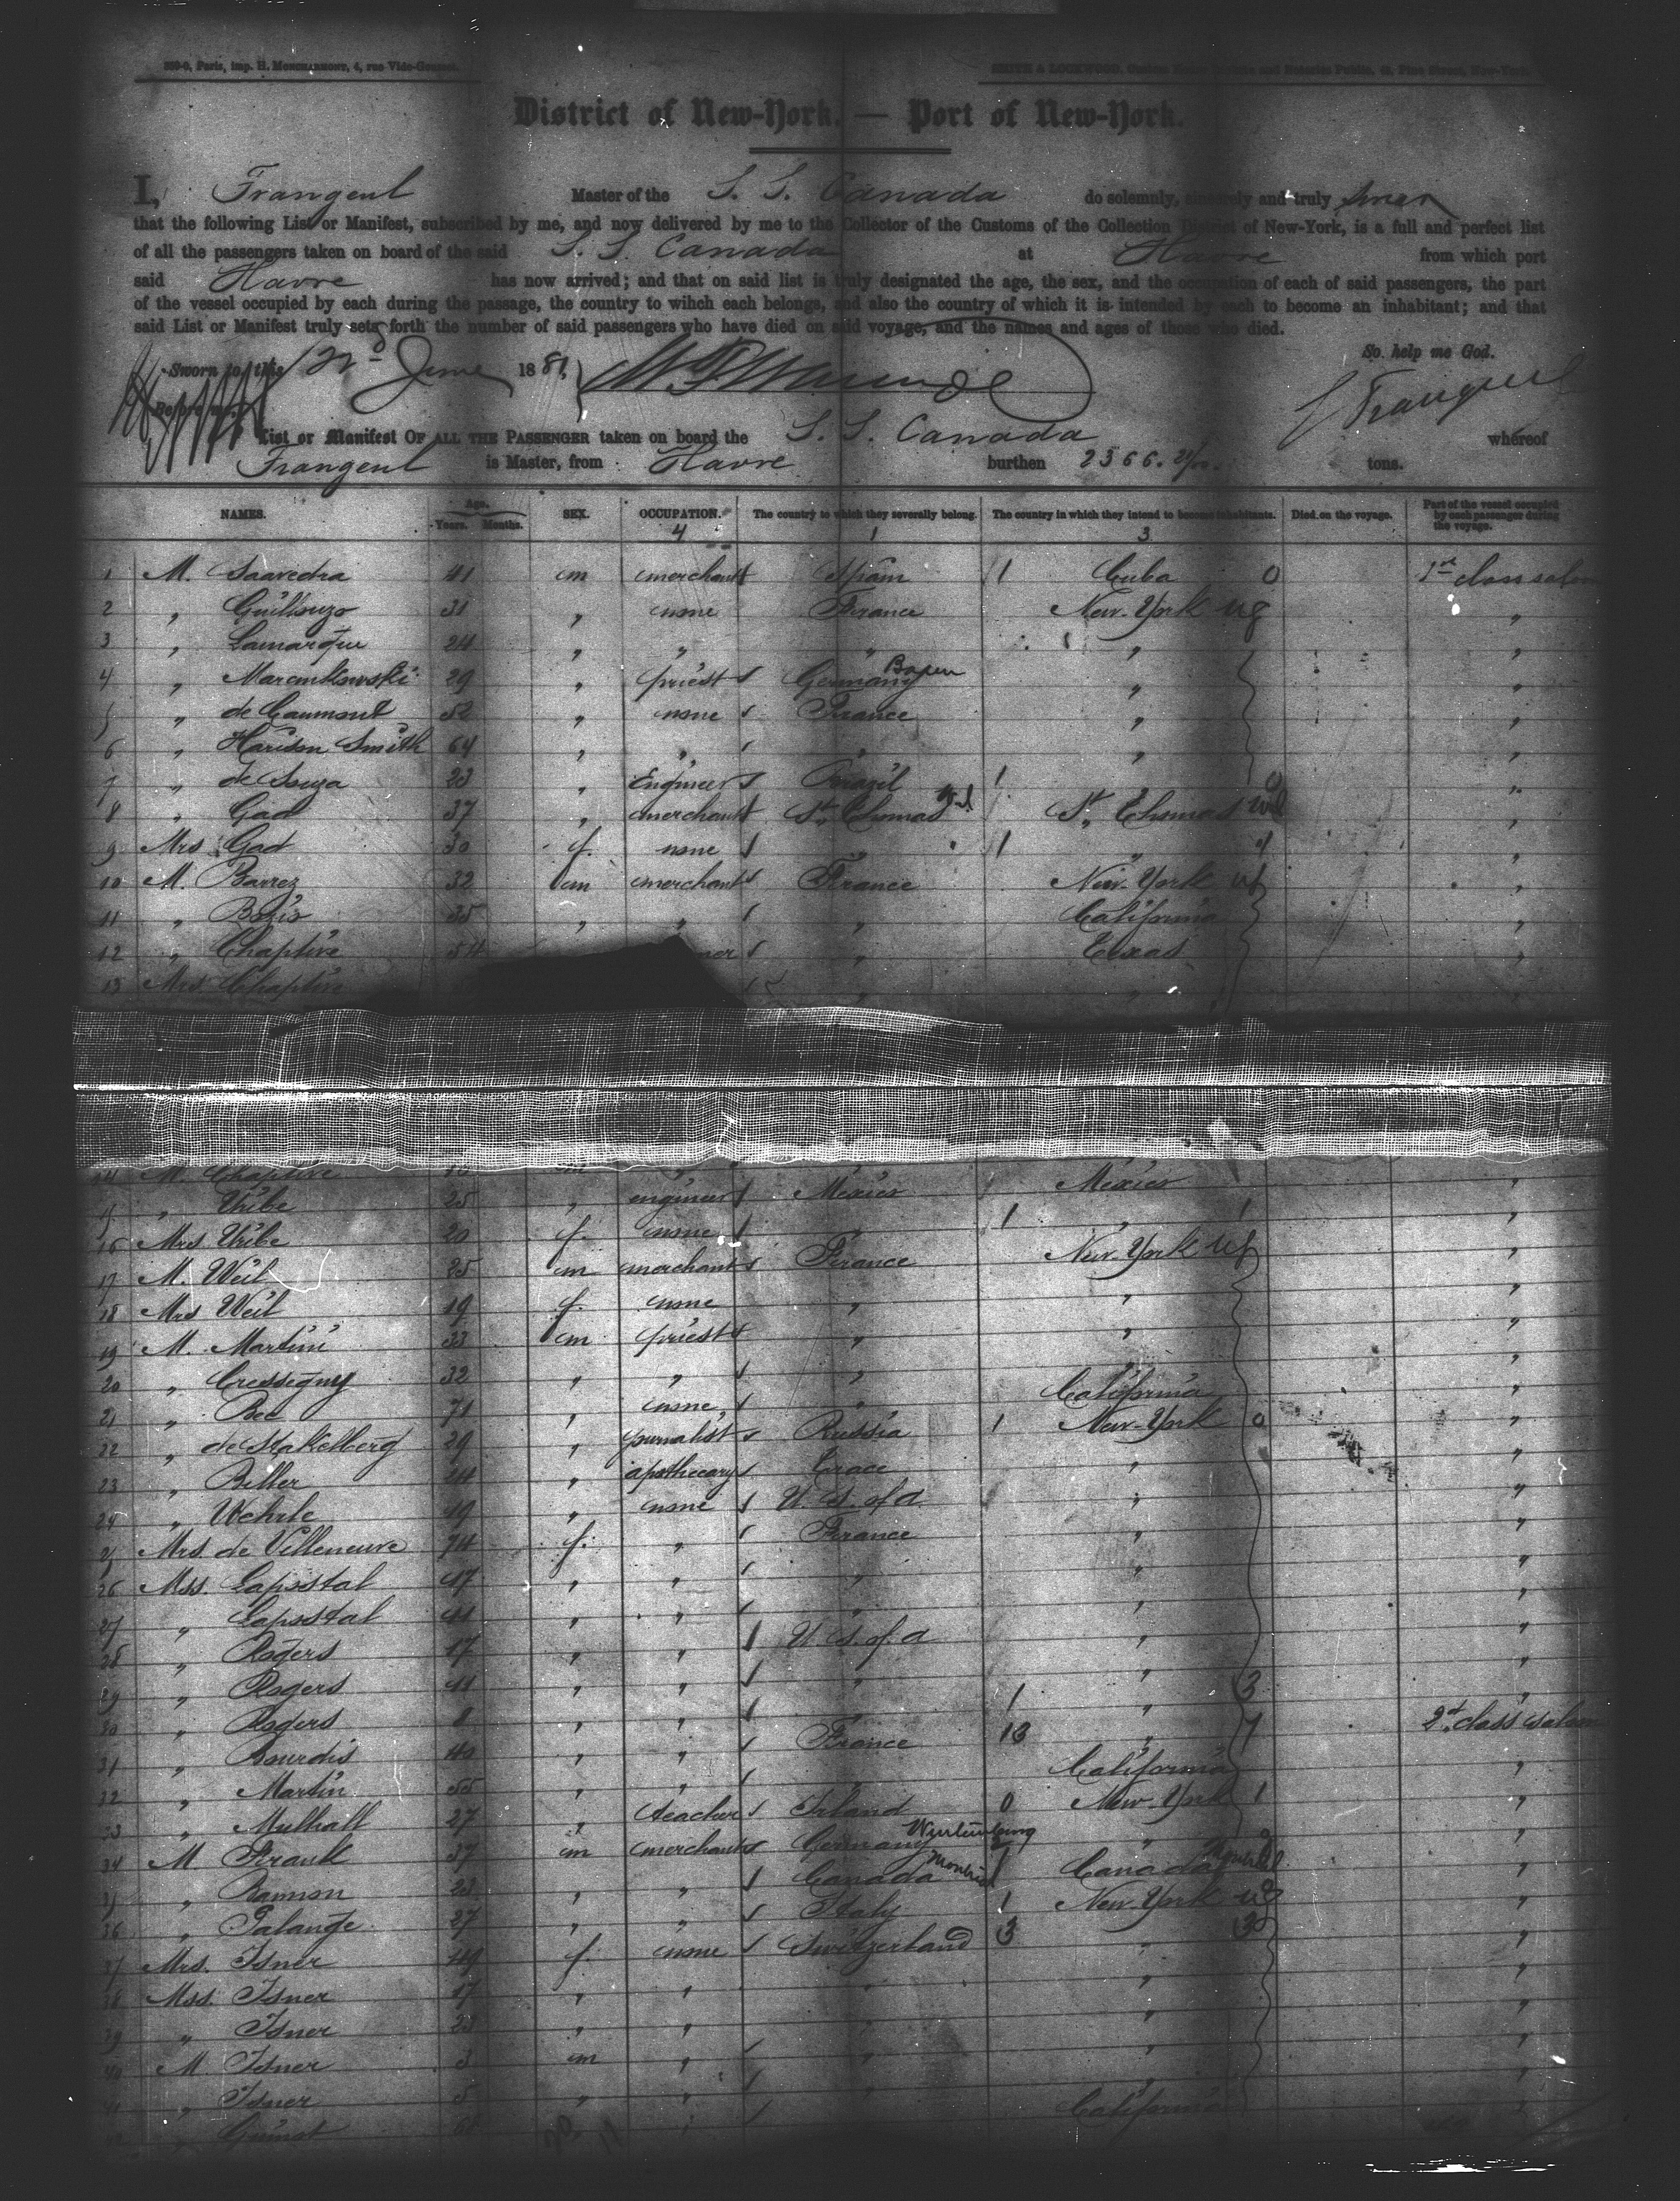 District of New-York. — Port of New-York.
I, Frangeul Master of the S. S. Canada do solemnly, sincerely and truly swear
that the following List or Manifest, subscribed by me, and now delivered by me to the Collector of the Customs of the Collection District of New-York, is a full and perfect list
of all the passengers taken on board of the said S. S. Canada at Havre from which port
said Havre has now arrived; and that on said list is truly designated the age, the sex, and the occupation of each of said passengers, the part
of the vessel occupied by each during the passage, the country to wihch each belongs, and also the country of which it is intended by each to become an inhabitant; and that
said List or Manifest truly sets forth the number of said passengers who have died on said voyage, and the names and ages of those who died.
So help me God.
Sworn to this June 1881
Frangeul
List or Manifest OF ALL THE PASSENGER taken on board the S. S. Canada whereof
Frangeul is Master, from Havre burthen 2366. tons.
NAMES. Age. Years. Months. SEX. OCCUPATION. The country to which they severally belong. The country in which they intend to become inhabitants. Died on the voyage. Part of the vessel occupied by each passenger during the voyage.
4 1 3
1 M. Saavedra 41 m merchant Spain 1 Cuba 0 1st class saloon
2 " 31 " none France New-York "
3 " Lamarque 24 " " " " "
4 " 29 " priest Germany " "
5 " de Caumont 52 " none France " "
6 " Harison Smith 64 " " " " "
7 " de Souza 23 " Engineer Brazil 1 " 0 "
8 " Gad 37 " merchant St. Thomas St. Thomas "
9 Mrs Gad 30 f. none " 1 " "
10 M. Barrez 32 m merchant France New-York "
11 " Bozio 35 " " " California "
12 " Chaptive 54 " Texas "
13 Mrs Chaptive " " "
14 M. Chaptive m " "
15 " Uribe 25 " engineer Mexico Mexico "
16 Mrs Uribe 20 f. none " 1 " 1 "
17 M. Weil 25 m merchant France New-York "
18 Mrs Weil 19 f. none " " "
19 M. Martini 33 m priest " " "
20 " Cressegny 32 " " " California "
21 " Bec 71 " none " New-York "
22 " de Stakelberg 29 " journalist Russia 1 " 0 "
23 " Biller 24 " apothecary Grece " "
24 " Wehrle 49 " none U. S. of a. " "
25 Mrs. de Villeneuve 74 f. " France " "
26 Mss. Lapostal 47 " " " " "
27 " Lapostal 41 " " " " "
28 " Rogers 17 " " U. S. of. a " "
29 " Rogers 11 " " " " 3 "
30 " Rogers 8 " " " 1 " "
31 " Bourdis 40 " " France 13 " 7 2d class saloon
32 " Martin 55 " " " California "
33 " Mulhall 27 " teacher Irland 0 New-York 1 "
34 M. Frank 37 m merchant Germany " "
35 " Bannon 23 " " Canada 1 Canada "
36 " Palange 27 " " Italy 1 New-York "
37 Mrs. Isner 49 f. none Switzerland 3 " 3 "
38 Mss. Isner 17 " " " " "
39 " Isner 23 " " " " "
40 M. Isner 3 m " " " "
41 " Isner 5 " " " " "
42 " 60 " California "